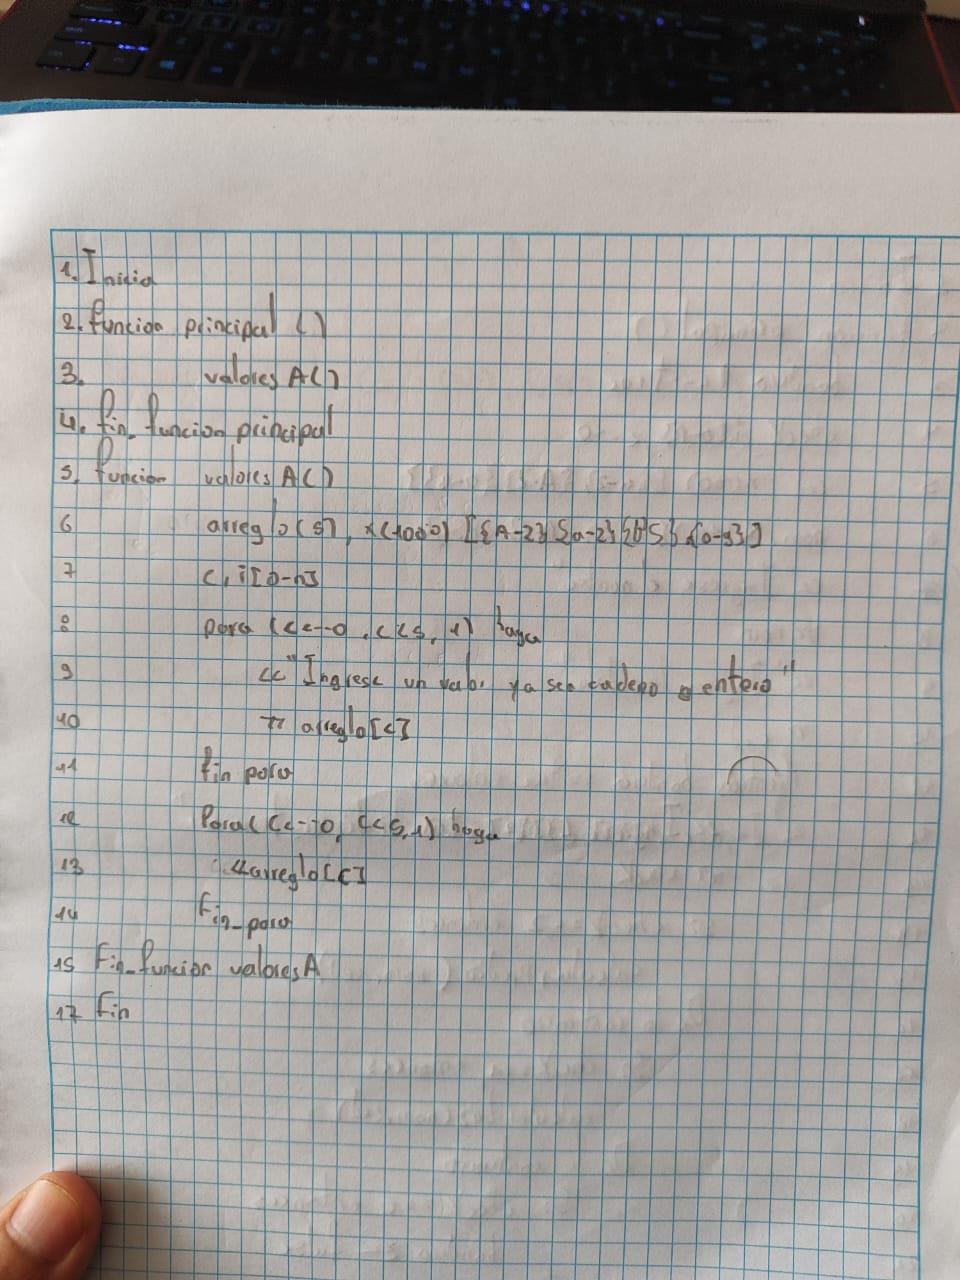 1. Inicio
2. funcion principal ()
3. valores A()
4. fin_funcion principal
5. funcion valores A()
6 arreglo(5), x(1000) [{A-Z}{a-z}{0-9}]
7 c, i[0-n]
8 para (c<--0, c<5, 1) haga
9 << "Ingrese un valor ya sea cadena o entero"
10 >> arreglo[c]
11 fin para
12 Para (c<--0, c<5, 1) haga
13 <<arreglo[c]
14 Fin_para
15 Fin_funcion valores A
17 Fin